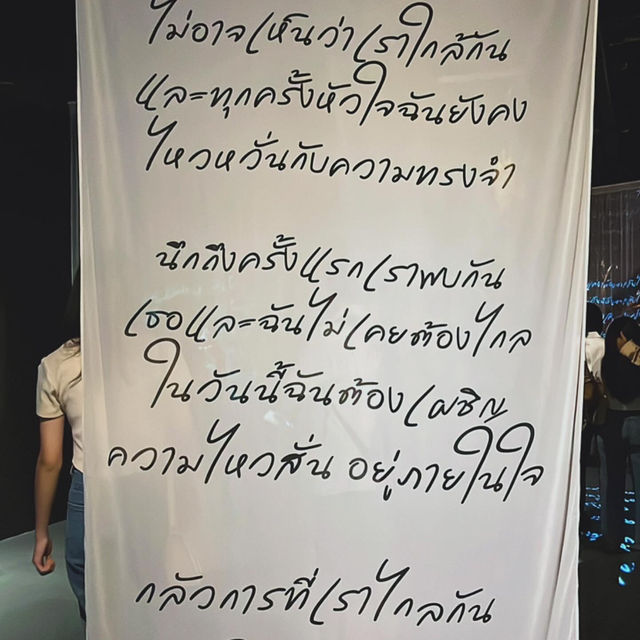 ไม่อาจเห็นว่าเราใกล้กัน
และทุกครั้งหัวใจฉันยังคง
ไหวหวั่นกับความทรงจำ
นึกถึงครั้งแรกเราพบกัน
เธอและฉันไม่เคยต้องไกล
ในวันนี้ฉันต้องเผชิญ
ความไหวสั่น อยู่ภายในใจ
กลัวการที่เราไกลกัน